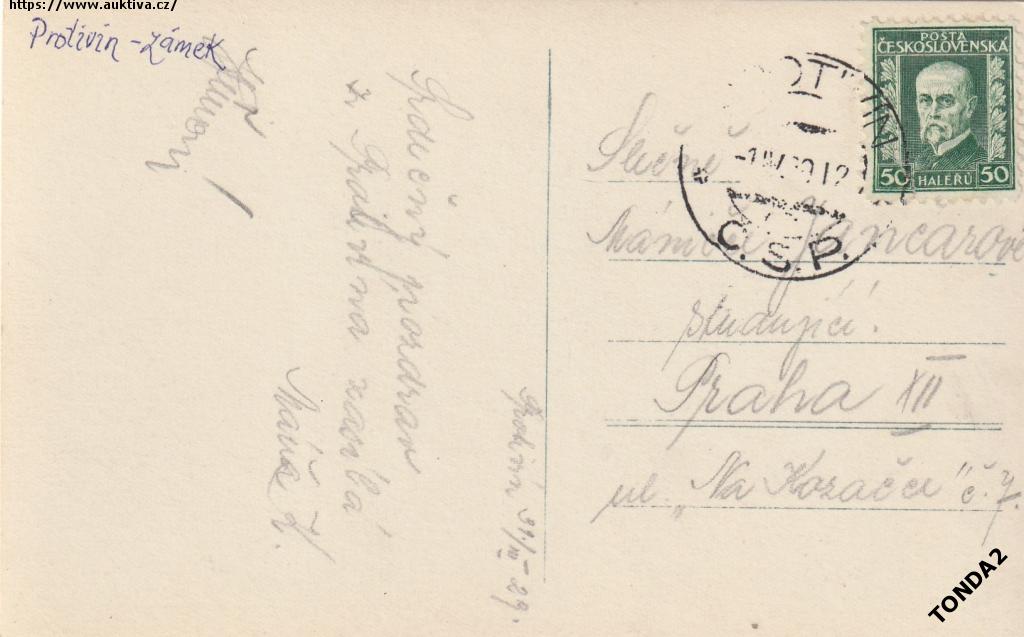 https://www.auktiva.cz/
Protivín - zámek
Srdečný pozdrav
z Protivína zasílá
Máňa Ž.
Protivín 31/III-29.
POŠTA
ČESKOSLOVENSKÁ
50 HALÉŘŮ 50
Č.S.P.
Slečně
Jančarové
studující.
Praha XII
ul. „Na Kozačce" č. 7.
TONDA2